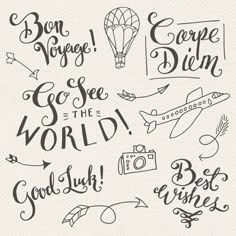 Bon
Voyage!
Carpe
Diem
Go See
THE
WORLD!
Good Luck!
Best
Wishes